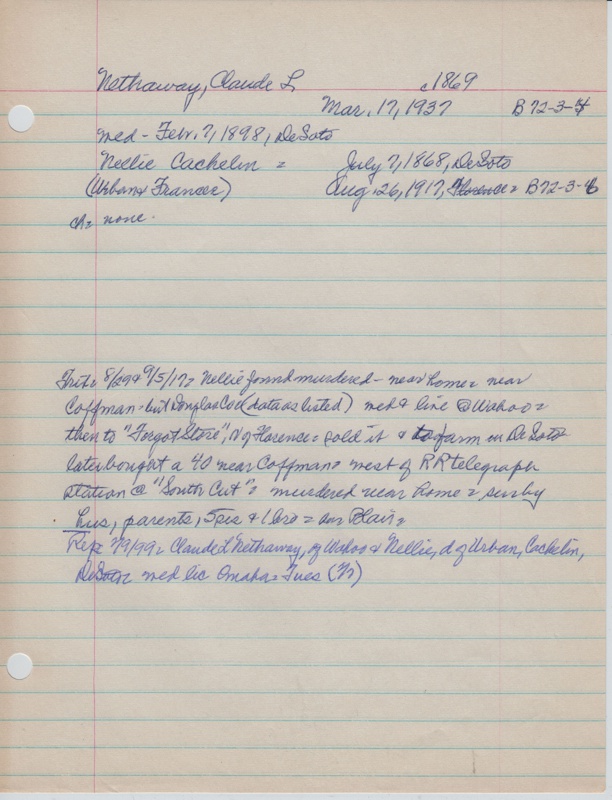 Nethaway, Claude L c1869
Mar. 17, 1937 B72-3-4
med - Febr. 7, 1898, DeSoto
Nellie Cachelin = July 7, 1868, DeSoto
(Urban & Frances) Aug. 26, 1917, Florence = B72-3-6
ch= none.
Trib= 8/29 & 9/5/17= Nellie found murdered - near home= near
Coffman= but Douglas Co (data as listed) med & line @ Wahoo=
then to "Forgot Store", N of Florence= sold it & to farm in DeSoto
later bought a 40 near Coffman= west of RR telegraph
station @ "South Cut"= murdered near home = surv by
hus, parents, 5 sis & 1 bro = bur Blair=
Rep= 2/9/99= Claude L Nethaway, of Wahoo & Nellie, d of Urban, Cachelin,
DeSoto= med lic Omaha= Tues